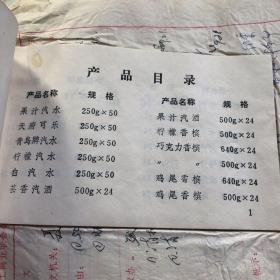 产品目录
产品名称 规格
果汁汽水 250g×50
天府可乐 250g×50
青岛牌汽水 250g×50
柠檬汽水 250g×50
白汽水 250g×50
芸香汽酒 500g×24
产品名称 规格
果汁汽酒 500g×24
柠檬香槟 500g×24
巧克力香槟 640g×24
〃 〃 500g×24
鸡尾香槟 640g×24
鸡尾香槟 500g×24
1